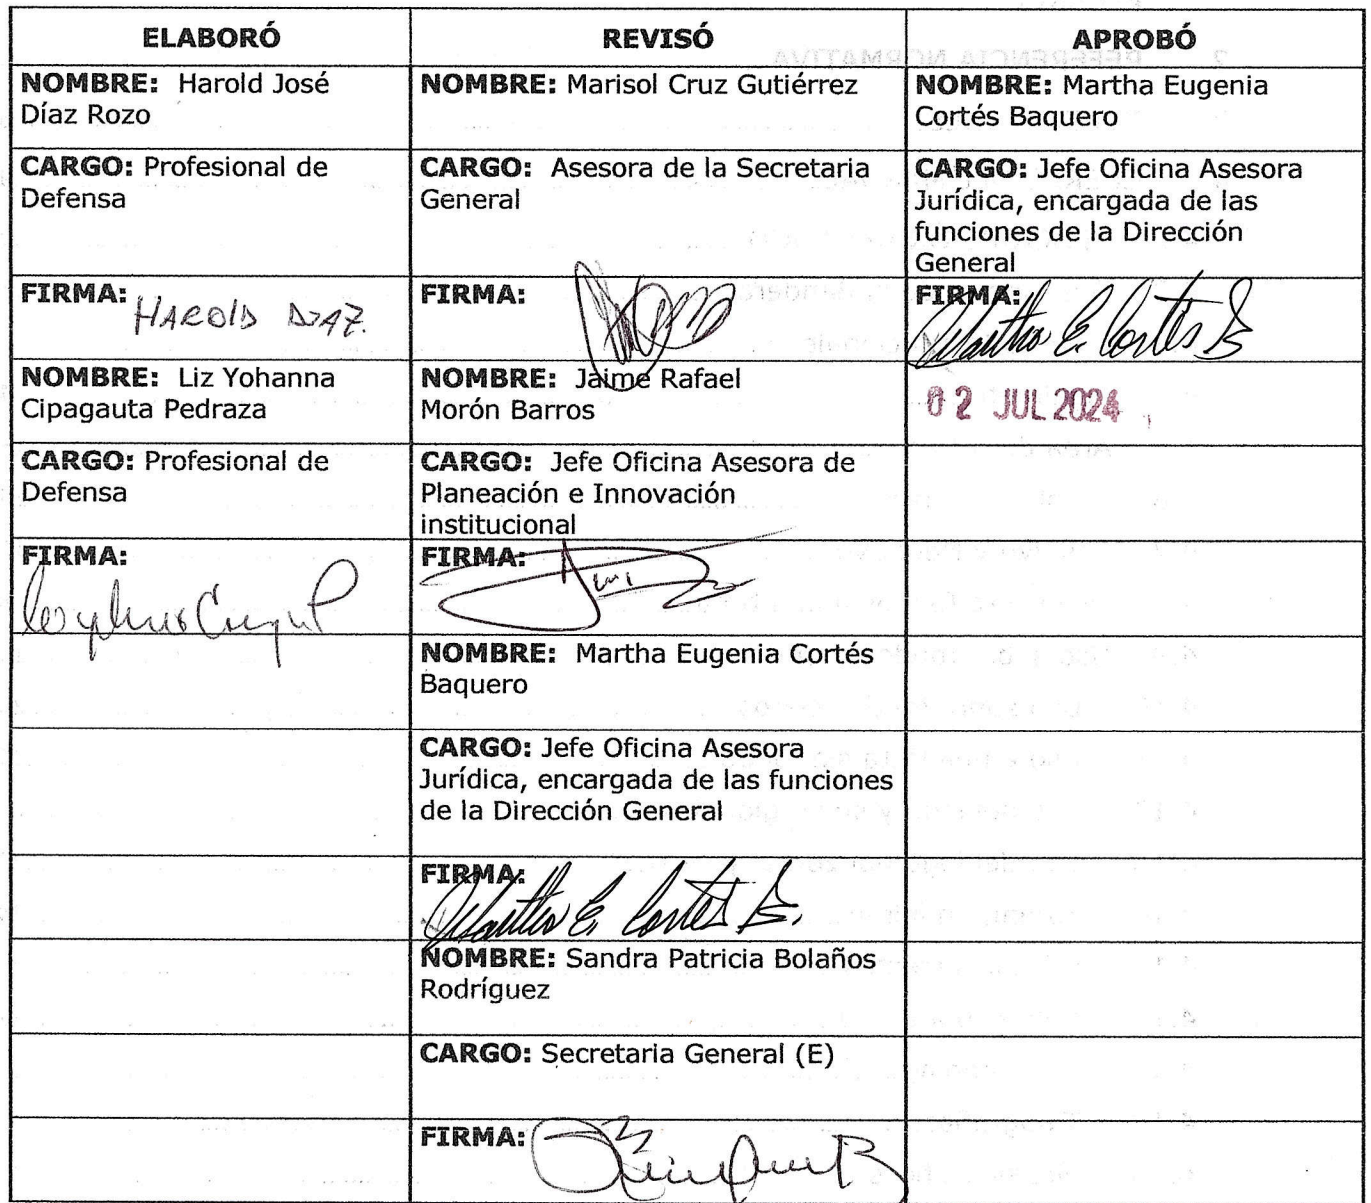 ELABORÓ
REVISÓ
APROBÓ
NOMBRE: Harold José
Díaz Rozo
NOMBRE: Marisol Cruz Gutiérrez
NOMBRE: Martha Eugenia
Cortés Baquero
CARGO: Profesional de
Defensa
CARGO: Asesora de la Secretaria
General
CARGO: Jefe Oficina Asesora
Jurídica, encargada de las
funciones de la Dirección
General
FIRMA: HAROLD DIAZ.
FIRMA:
FIRMA:
Martha E. Cortés B
NOMBRE: Liz Yohanna
Cipagauta Pedraza
NOMBRE: Jaime Rafael
Morón Barros
02 JUL 2024
CARGO: Profesional de
Defensa
CARGO: Jefe Oficina Asesora de
Planeación e Innovación
institucional
FIRMA:
FIRMA:
NOMBRE: Martha Eugenia Cortés
Baquero
CARGO: Jefe Oficina Asesora
Jurídica, encargada de las funciones
de la Dirección General
FIRMA:
Martha E. Cortés B.
NOMBRE: Sandra Patricia Bolaños
Rodríguez
CARGO: Secretaria General (E)
FIRMA: